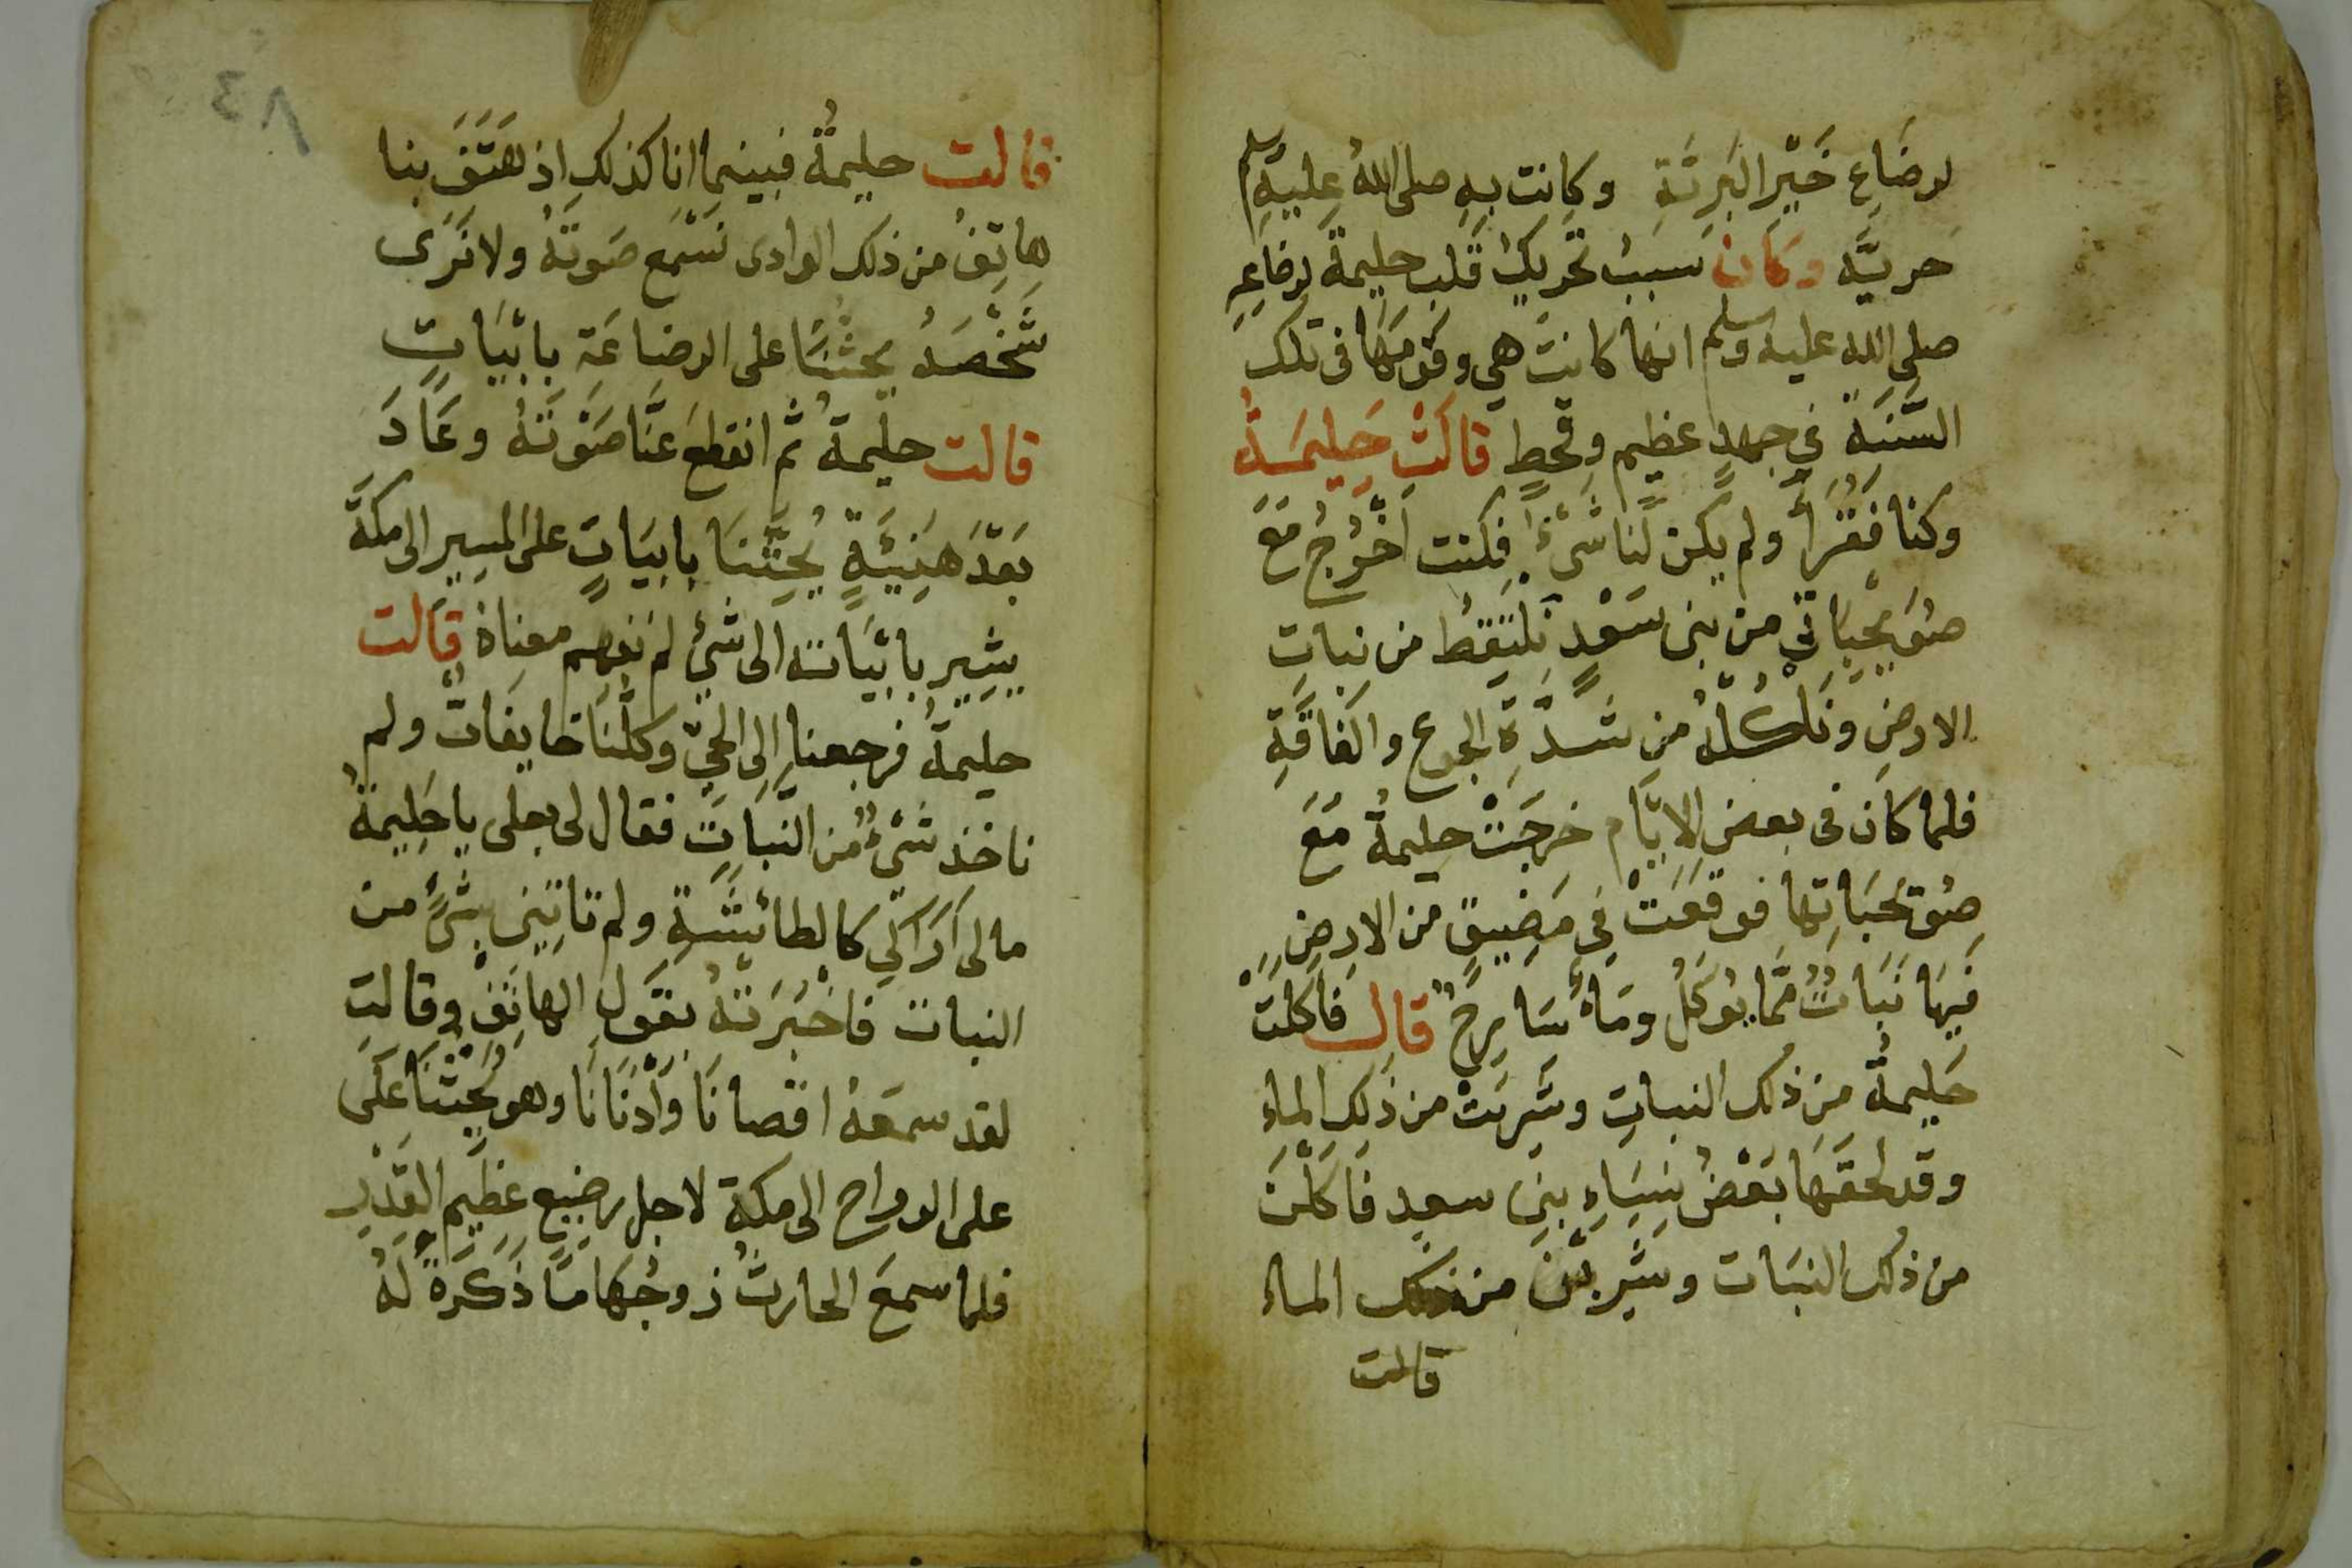 لرضَاعِ خَيْرِ البَرِيَّةِ وكانت بهِ صلى اللهُ عليهِ وسلم
حريَّه وكَانَ سببُ تحْرِيكِ قَلب حليمةَ لرضاعِهِ
صلى الله عليه وسلم انها كانت هي وقومَهَا فى تلك
السَّنَةِ في جهدٍ عظيم وقحطٍ قَالَتْ حَلِيمَةُ
وكنا فُقَرَاً ولم يكن لنا شَىْءٌ فكنت اَخْرُجُ مَعَ
صُوَيْحِبَاتِي من بنى سَعْدٍ نَلْتَقِطُ من نباتِ
الارضِ ونَاْكُلُهُ من شَدَّةِ الجوع والفَاقَةِ
فلما كان فى بعض الايَّام خرجَتْ حليمةُ مَعَ
صُوَيحْبَاتِها فوقَعَتْ فِي مَضِيقٍ من الارضِ
فيهَا نَبَاتٌ مَّما يُوكَلُ ومَاءٌ سَارِحٌ قال فَاَكَلَتْ
حَليمةُ من ذلك النباتِ وشَرِبَتْ من ذَلِكِ الماءِ
وقد لحقَهَا بَعْضُ نِسَاءِ بنى سعدٍ فَاَكَلْنَ
من ذلك النبَات وشَرِبْنَ من ذلك الماء
قالت
٤٨
قالت حليمةُ فبينما انا كذلكِ اذ هَتَفَ بنا
هاتِفُ من ذلك الوادى نسْمَع صَوتَهُ ولا نَرَى
شَخْصَهُ يحثنَا على الرضاعَة بابْيَاتٍ
قالت حليمةُ ثم انقطعَ عَنَّا صَوْتَهُ وعَادَ
بَعْدَ هَنِيَّةٍ يُحِثّنَا بابيَاتٍ على المسِيرِ الى مكةَ
يشِير بابْيَاته الى شيْءٍ لم نفهم معنِاهُ قالت
حليمةُ فرجعنا الى الحَىِّ وكلُّنَا خايفَاتٌ ولم
ناخذ شَىْءٌ من النَّبَاتِ فقال لى بعلى يا حَلِيمةُ
مالى اَرَاكِي كالطائشَةِ ولم تاتِينى بشَىْءٍ من
النبات فاَخْبَرَتهُ بقولِ الهاتفِ وقالت
لقد سمعَهُ اقصانَا وَاَدْنَانَا وهو يُحِثّنَا عَلَى
على الرواح الى مكةَ لاجل رضيعٍ عظِيم القَدْرِ
فلما سمعَ الحارثُ زوجُهَا مَا ذَكَرَةْ لَهُ